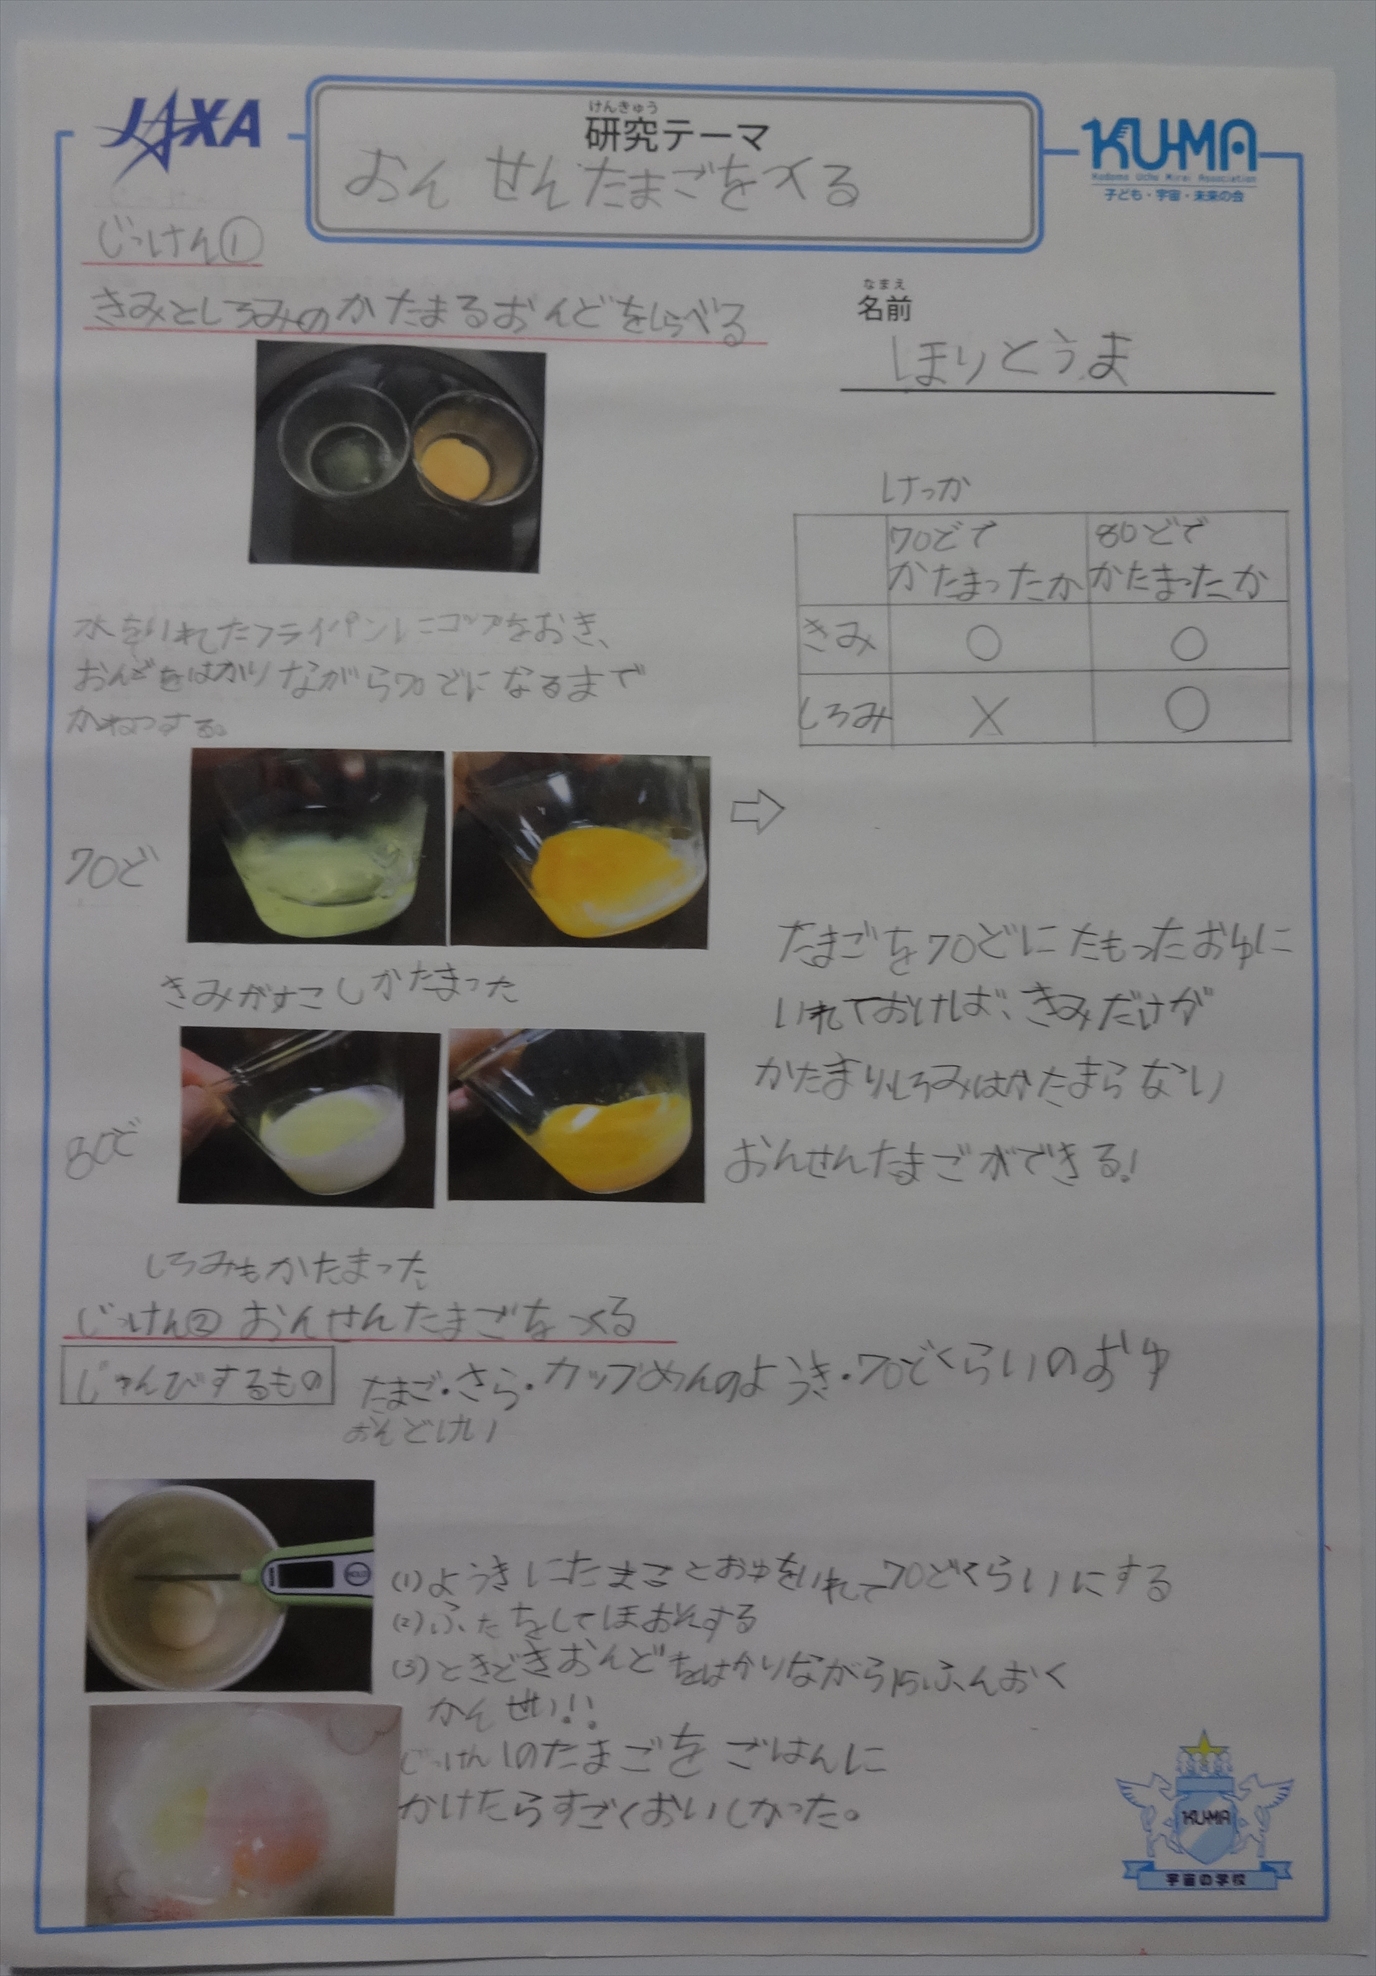 JAXA
けんきゅう
研究テーマ
おんせんたまごをつくる
KU-MA
Kodomo Uchu Mirai Association
子ども・宇宙・未来の会
じっけん①
きみとしろみのかたまるおんどをしらべる
なまえ
名前
ほりとうま
水をいれたフライパンにコップをおき、
おんどをはかりながら70どになるまで
かねつする。
70ど
きみがすこしかたまった
80ど
しろみもかたまった
けっか
70どで 80どで
かたまったか かたまったか
きみ ○ ○
しろみ X ○
⇨
たまごを70どにたもったおゆに
いれておけば、きみだけが
かたまりしろみはかたまらない
おんせんたまごができる!
じっけん② おんせんたまごをつくる
じゅんびするもの たまご・さら・カップめんのようき・70どくらいのおゆ
おんどけい
(1)ようきにたまごとおゆをいれて70どくらいにする
(2)ふたをしてほおんする
(3)ときどきおんどをはかりながら15ふんおく
かんせい!!
じっけん1のたまごをごはんに
かけたらすごくおいしかった。
KU-MA
宇宙の学校